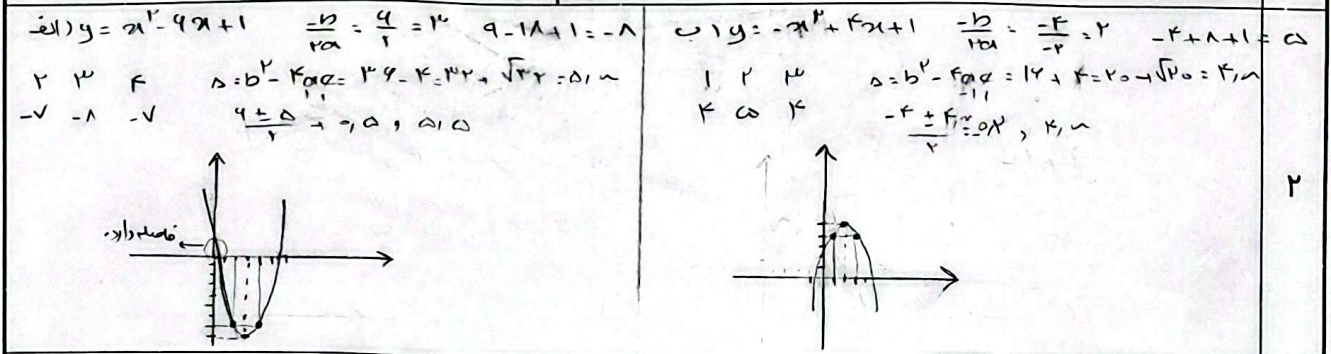 الف) y = x² - ۶x + 1   -b/۲a = ۶/۲ = ۳   ۹ - ۱۸ + ۱ = -۸
۲ ۳ ۴   Δ = b² - ۴ac = ۳۶ - ۴ = ۳۲ → √۳۲ = ۵,۸
-۷ -۸ -۷   (۶ ± ۵)/۲ → ۰,۵ , ۵,۵
فاصله دارد.
ب) y = -x² + ۴x + 1   -b/۲a = -۴/-۲ = ۲   -۴ + ۸ + ۱ = ۵
۱ ۲ ۳   Δ = b² - ۴ac = ۱۶ + ۴ = ۲۰ → √۲۰ = ۴,۸
۴ ۵ ۴   , ۴,۸
۲